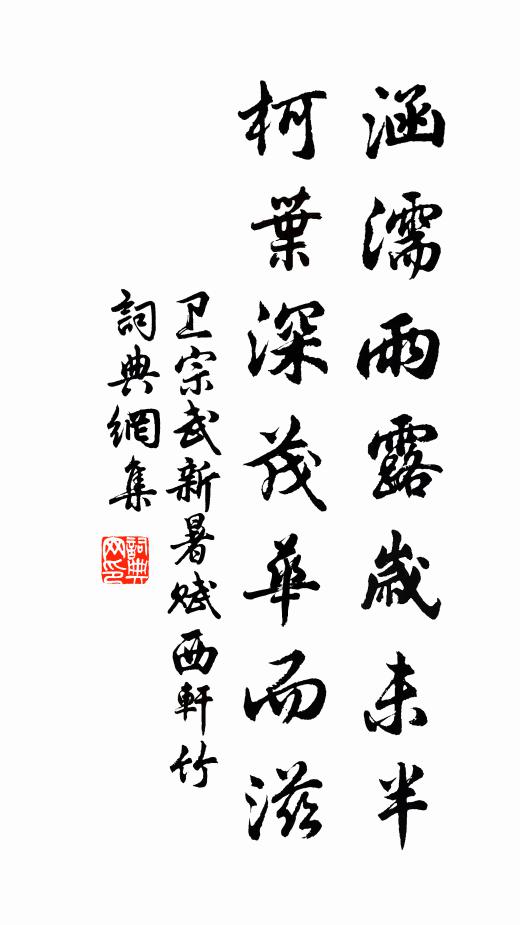 涵濡雨露歲未半
柯葉深茂華而滋
卫宗武新暑赋西軒竹
詞典網集
詞典网印